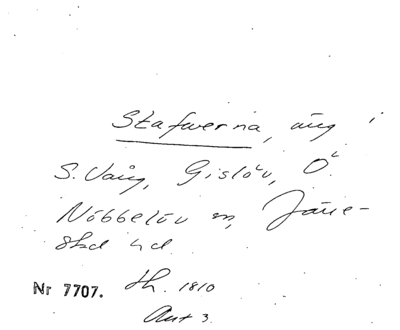 Stafwerna, äng i
S. Vång, Gislöv, Ö.
Nöbbelöv sn, Järre-
stad hd
Nr 7707. Sk. 1810
Akt 3.